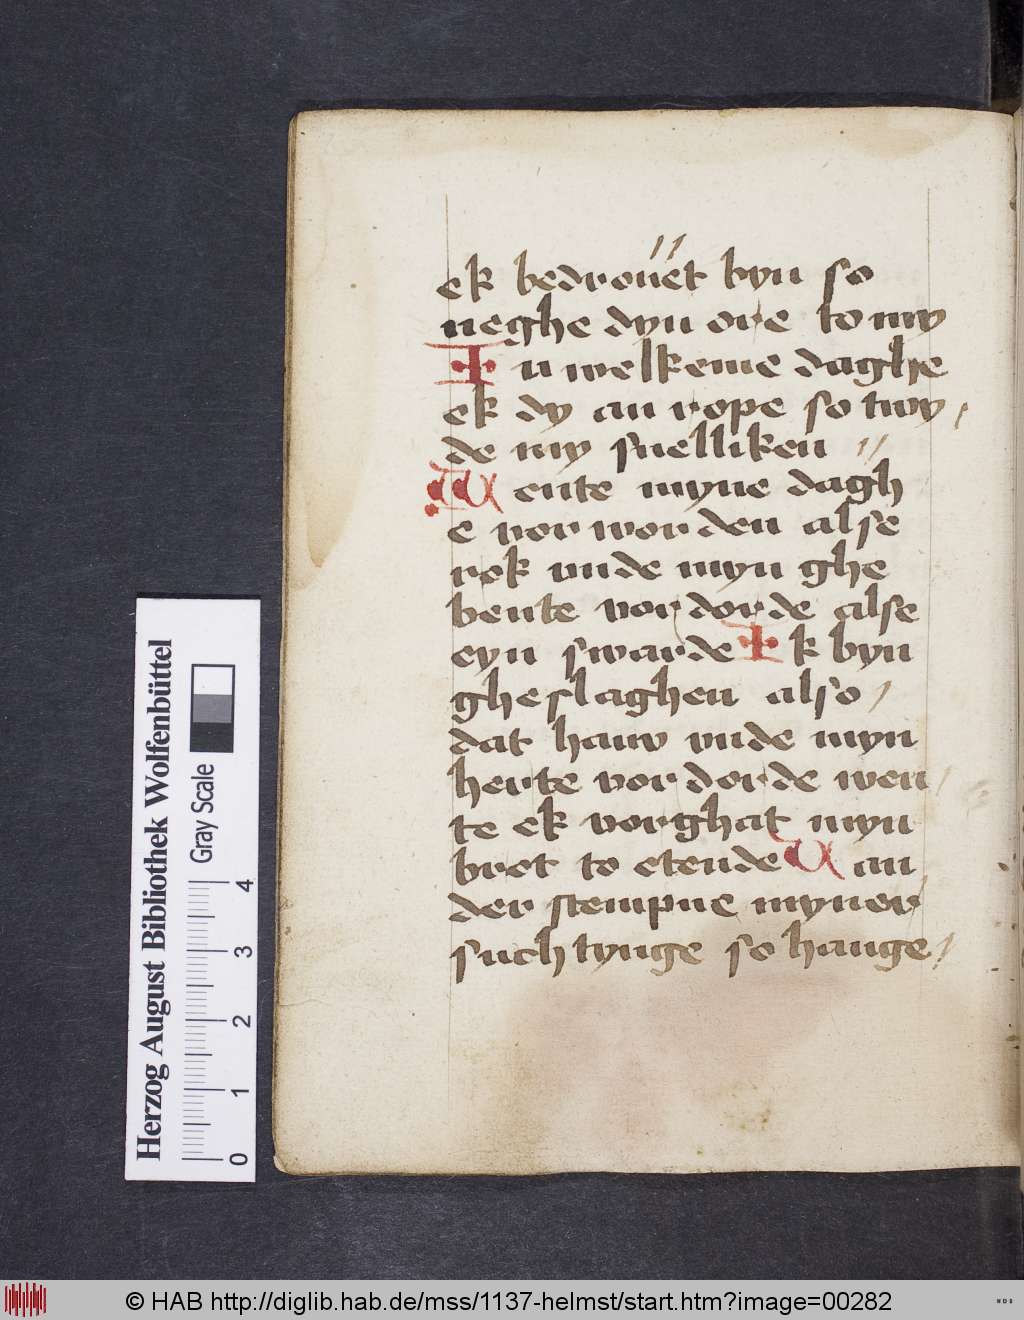 ek bedrouet byn so
neghe dyn ore to my
In welkeme daghe
ek dy an rope so twy
de my snelliken
Wente myne dagh
e vor worden alse
rok vnde myn ghe
bente vor dorde alse
eyn swarde Ik byn
gheslaghen also
dat hauw vnde myn
herte vor dorde wen
te ek vorghat myn
bret to etende Uan
der stempne myner
suchtynge so hange
Herzog August Bibliothek Wolfenbüttel
Gray Scale
0 1 2 3 4
© HAB http://diglib.hab.de/mss/1137-helmst/start.htm?image=00282